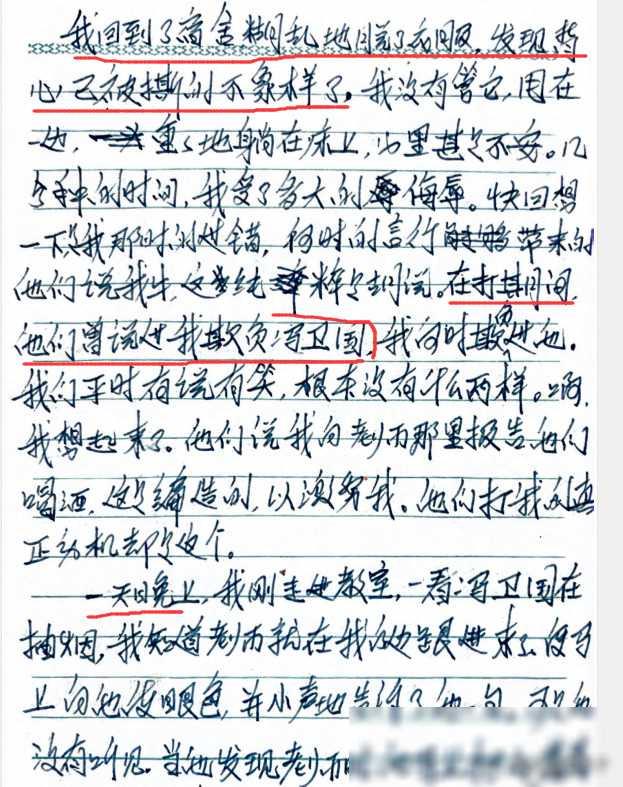 我回到了宿舍,糊乱地脱了衣服,发现背
心已被撕的不象样了。我没有管它,甩在
一边,重重地躺在床上,心里甚是不安。几
分钟的时间,我受了多大的侮辱。快回想
一下是我那时的过错,何时的言行带来的
他们说我牛,这纯粹是胡说。在打其间,
他们曾说过我欺负冯卫国,我何时欺负过他。
我们平时有说有笑,根本没有什么两样。啊,
我想起来了。他们说我向老师那里报告他们
喝酒,这是编造的,以激努我。他们打我的真
正动机却是这个。
一天日晚上,我刚走进教室,一看冯卫国在
抽烟,我知道老师就在我的边跟进来了。便马
上向他使眼色,并小声地告诉了他一句,可是他
没有听见。当他发现老师